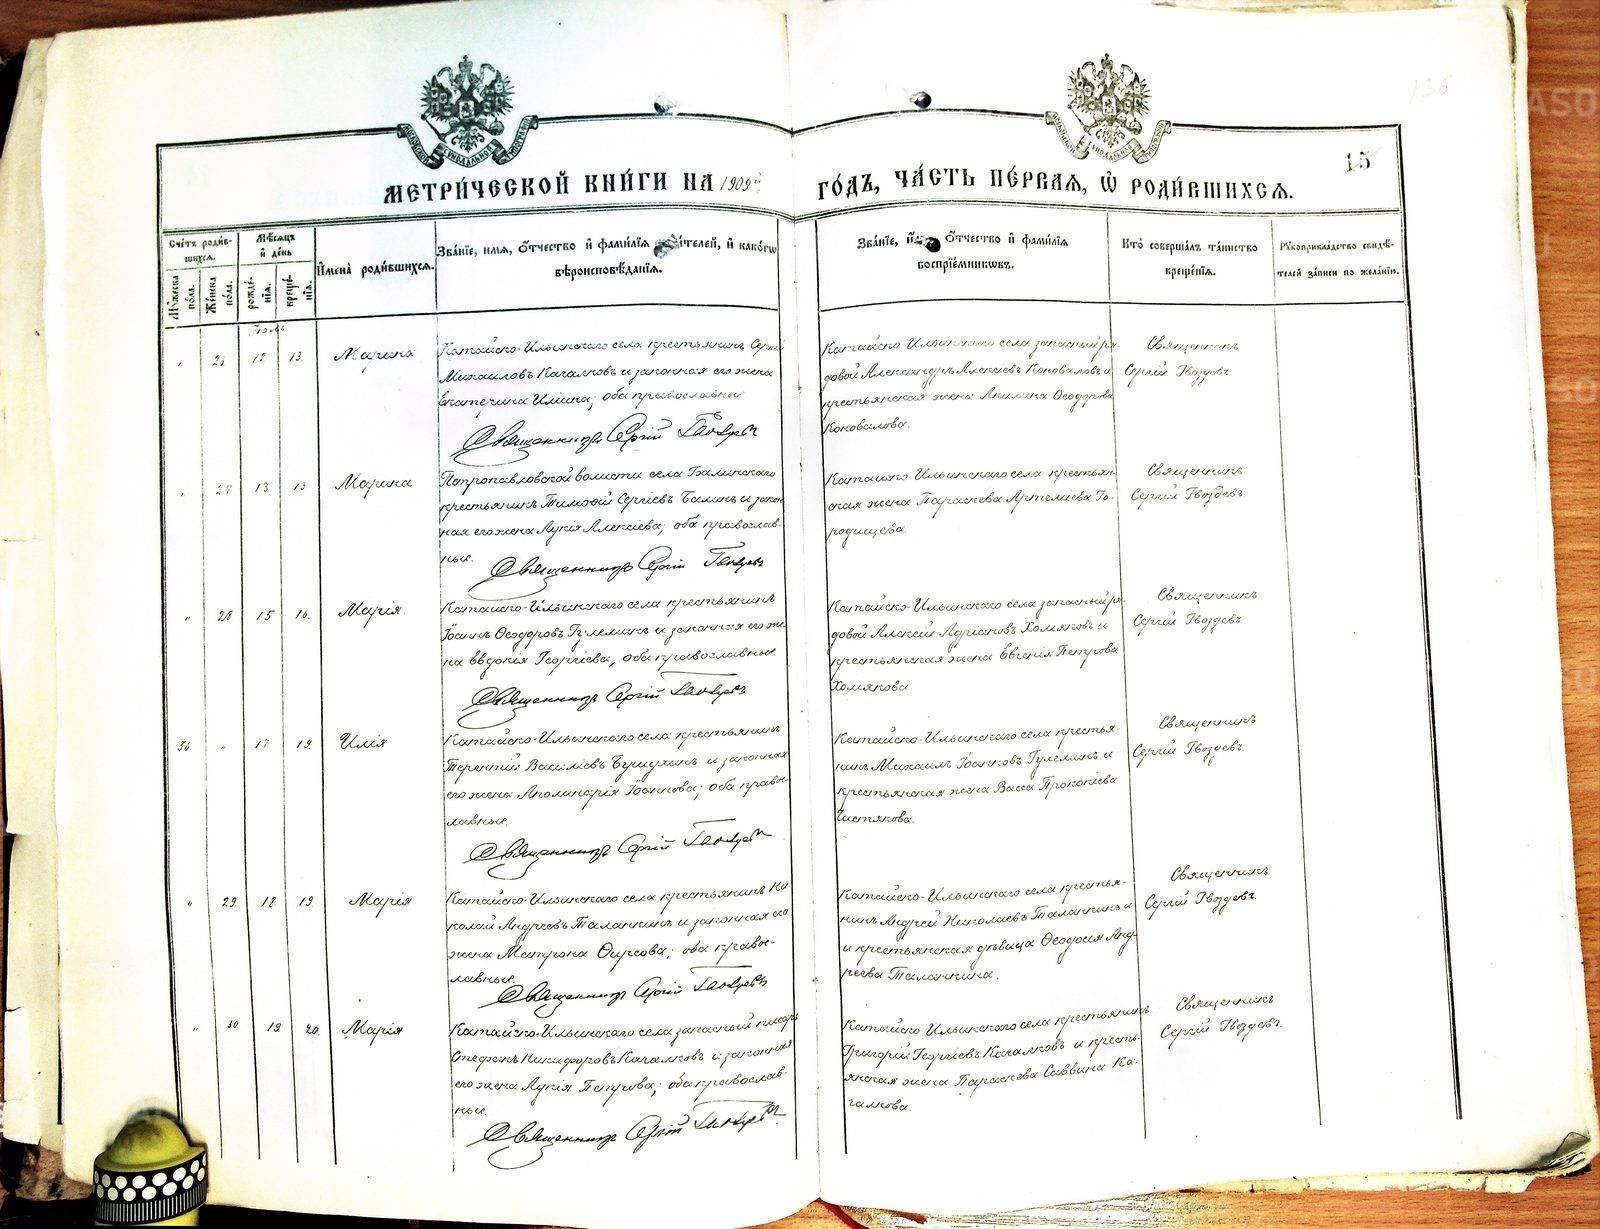 136
МЕТРИЧЕСКОЙ КНИГИ НА 1909й ГОДЪ, ЧАСТЬ ПЕРВАЯ, Ѡ РОДИВШИХСЯ.
15
Счетъ родившихся.
Мужеска пола.
Женска пола.
Мѣсяцъ и день
рожденія.
крещенія.
Имена родившихся.
Званіе, имя, отчество и фамилія родителей, и какогѡ
вѣроисповѣданія.
Званіе, имя, отчество и фамилія
воспріемниковъ.
Кто совершалъ таинство
крещенія.
Рукоприкладство свидѣ-
телей записи по желанію.
Іюль
„ 26 12 13 Марина
Катайско-Ильинскаго села крестьянинъ Сергій
Михаиловъ Качалковъ и законная его жена
Екатерина Иліина; оба православные
Священникъ Сергій Гвоздевъ
Катайско-Ильинскаго села запасный ря-
довой Александръ Алексіевъ Коноваловъ и
крестьянская жена Акилина Ѳеодорова
Коновалова.
Священникъ
Сергій Гвоздевъ
„ 27 13 13 Марина
Петропавловской волости села Балинскаго
крестьянинъ Тимоѳей Сергіевъ Балинъ и закон-
ная его жена Лукія Алексіева; оба православ-
ные.
Священникъ Сергій Гвоздевъ
Катайско-Ильинскаго села крестьян-
ская жена Параскева Артемиева Го-
родищева.
Священникъ
Сергій Гвоздевъ
„ 28 15 16. Марія
Катайско-Ильинскаго села крестьянинъ
Іоаннъ Ѳеодоровъ Гулеминъ и законная его же-
на Евдокія Георгіева, оба православные.
Священникъ Сергій Гвоздевъ
Катайско-Ильинскаго села запасный ря-
довой Алексій Адріановъ Хомяковъ и
крестьянская жена Евгенія Петрова
Хомякова
Священникъ
Сергій Гвоздевъ
36 „ 17. 19. Илія
Катайско-Ильинскаго села крестьянинъ
Терентій Василіевъ Бушухинъ и законная
его жена Аполинарія Іоаннова; оба право-
славные.
Священникъ Сергій Гвоздевъ
Катайско-Ильинскаго села крестья-
нинъ Михаилъ Іоанновъ Гулеминъ и
крестьянская жена Васса Прокопіева
Чистякова.
Священникъ
Сергій Гвоздевъ
„ 29 18 19. Марія
Катайско-Ильинскаго села крестьянинъ Ни-
колай Андреевъ Таланкинъ и законная его
жена Матрона Фирсова; оба право-
славные.
Священникъ Сергій Гвоздевъ
Катайско-Ильинскаго села крестья-
нинъ Андрей Николаевъ Таланкинъ и
и крестьянская дѣвица Ѳеодосія Анд-
реева Таланкина.
Священникъ
Сергій Гвоздевъ.
„ 30. 19 20. Марія
Катайско-Ильинскаго села запасный писарь
Стефанъ Никифоровъ Качалковъ и законная
его жена Лукія Петрова; оба православ-
ные.
Священникъ Сергій Гвоздевъ
Катайско Ильинскаго села крестьянинъ
Григорій Георгіевъ Качалковъ и кресть-
янская жена Параскева Саввина Ка-
чалкова.
Священникъ
Сергій Гвоздевъ.